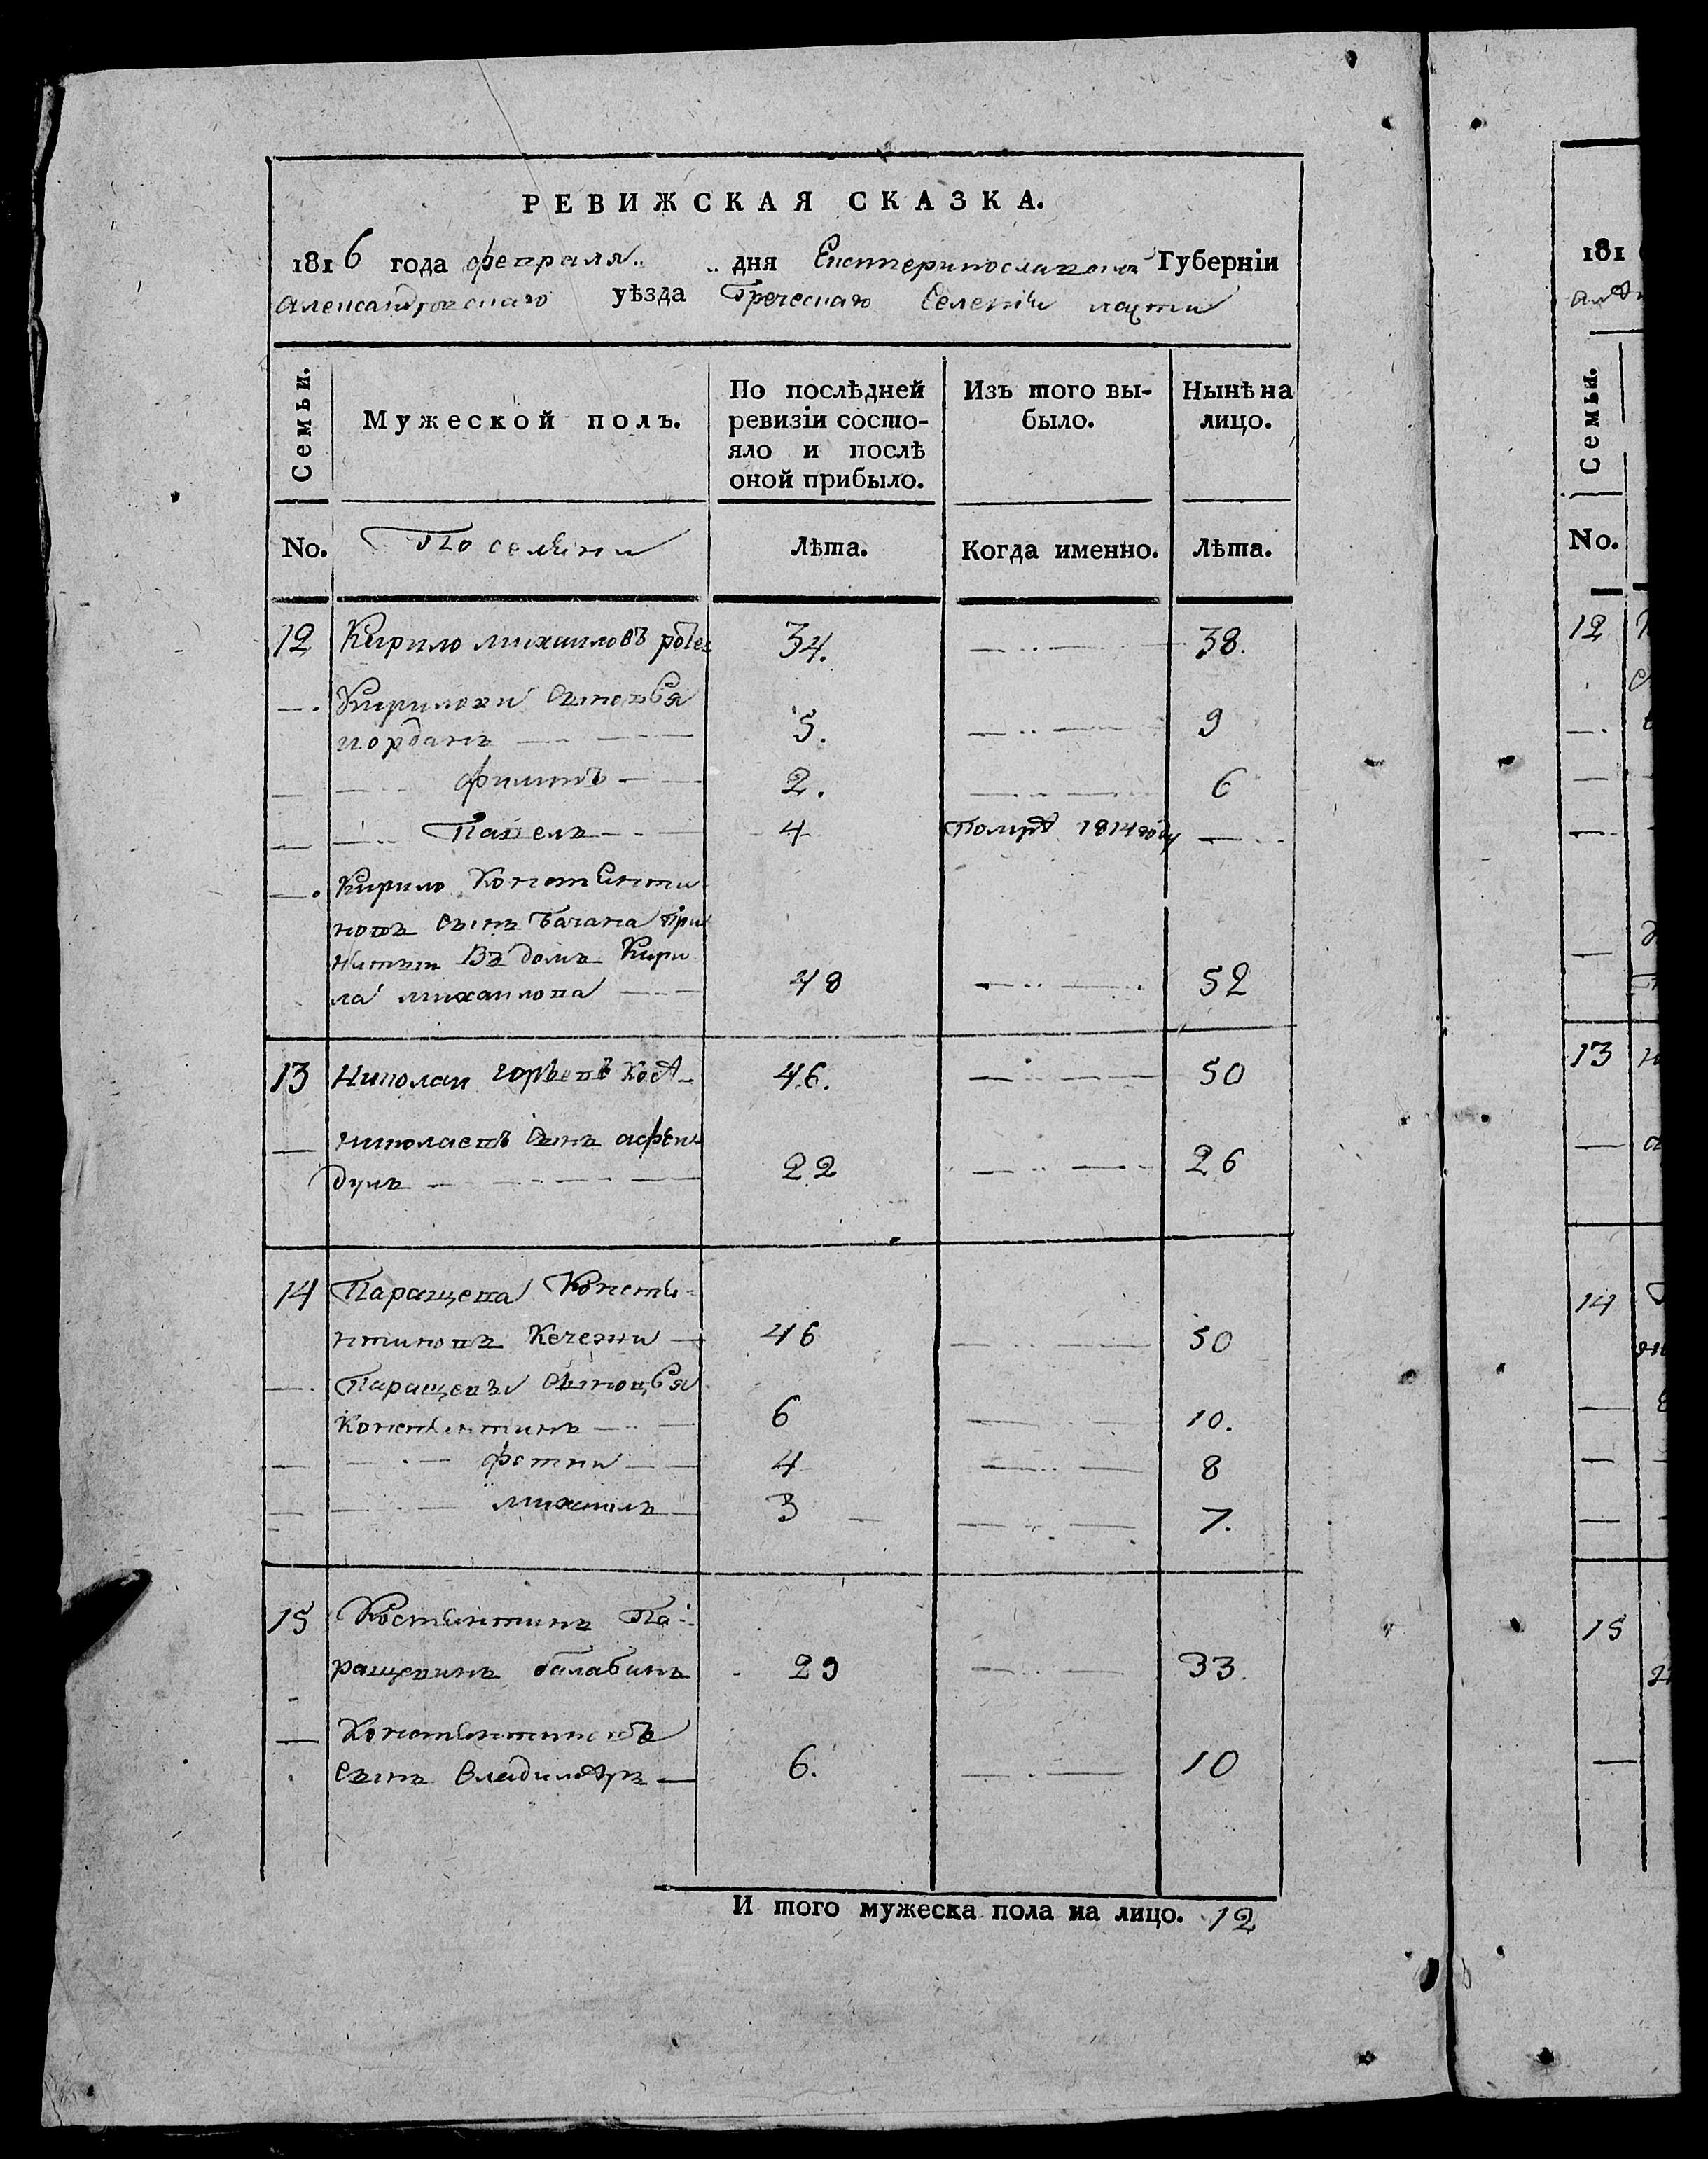 РЕВИЖСКАЯ СКАЗКА.
1816 года февраля дня Екатеринославской Губерніи
Александровскаго уѣзда Греческаго Селенія
Семьи. Мужеской полъ. По послѣдней ревизіи состояло и послѣ оной прибыло. Изъ того выбыло. Нынѣ на лицо.
No. Лѣта. Когда именно. Лѣта.
12 Кирило михаиловъ 34. 38.
Кириловы Сыновья
иорданъ 5. 9
филипъ 2. 6
Павелъ 4 Помре 1814 году
Кирило Констенти
новъ сынъ бачана при
Нитый Въ домъ Кири
ла михаилова 48 52
13 Николаи 46. 50
николаевъ сынъ афен
дулъ 22 26
14 Паращева Консте-
нтиновъ Кечеджи 46 50
Паращевы сыновья
Константинъ 6 10.
фотии 4 8
михаилъ 3 7.
15 Костентинъ Па-
ращевинъ балабанъ 29 33.
Констентиновъ
сынъ Владимеръ 6. 10
И того мужеска пола на лицо. 12
181
Семьи.
No.
12
13
14
15